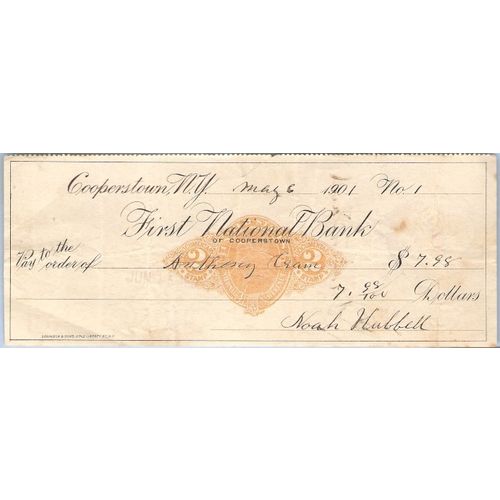 Cooperstown, N.Y. May 6 1901 No. 1
First National Bank
OF COOPERSTOWN
Pay to the order of Anthony Cram $7.98
7. 98/100 Dollars
Noah Hubbell